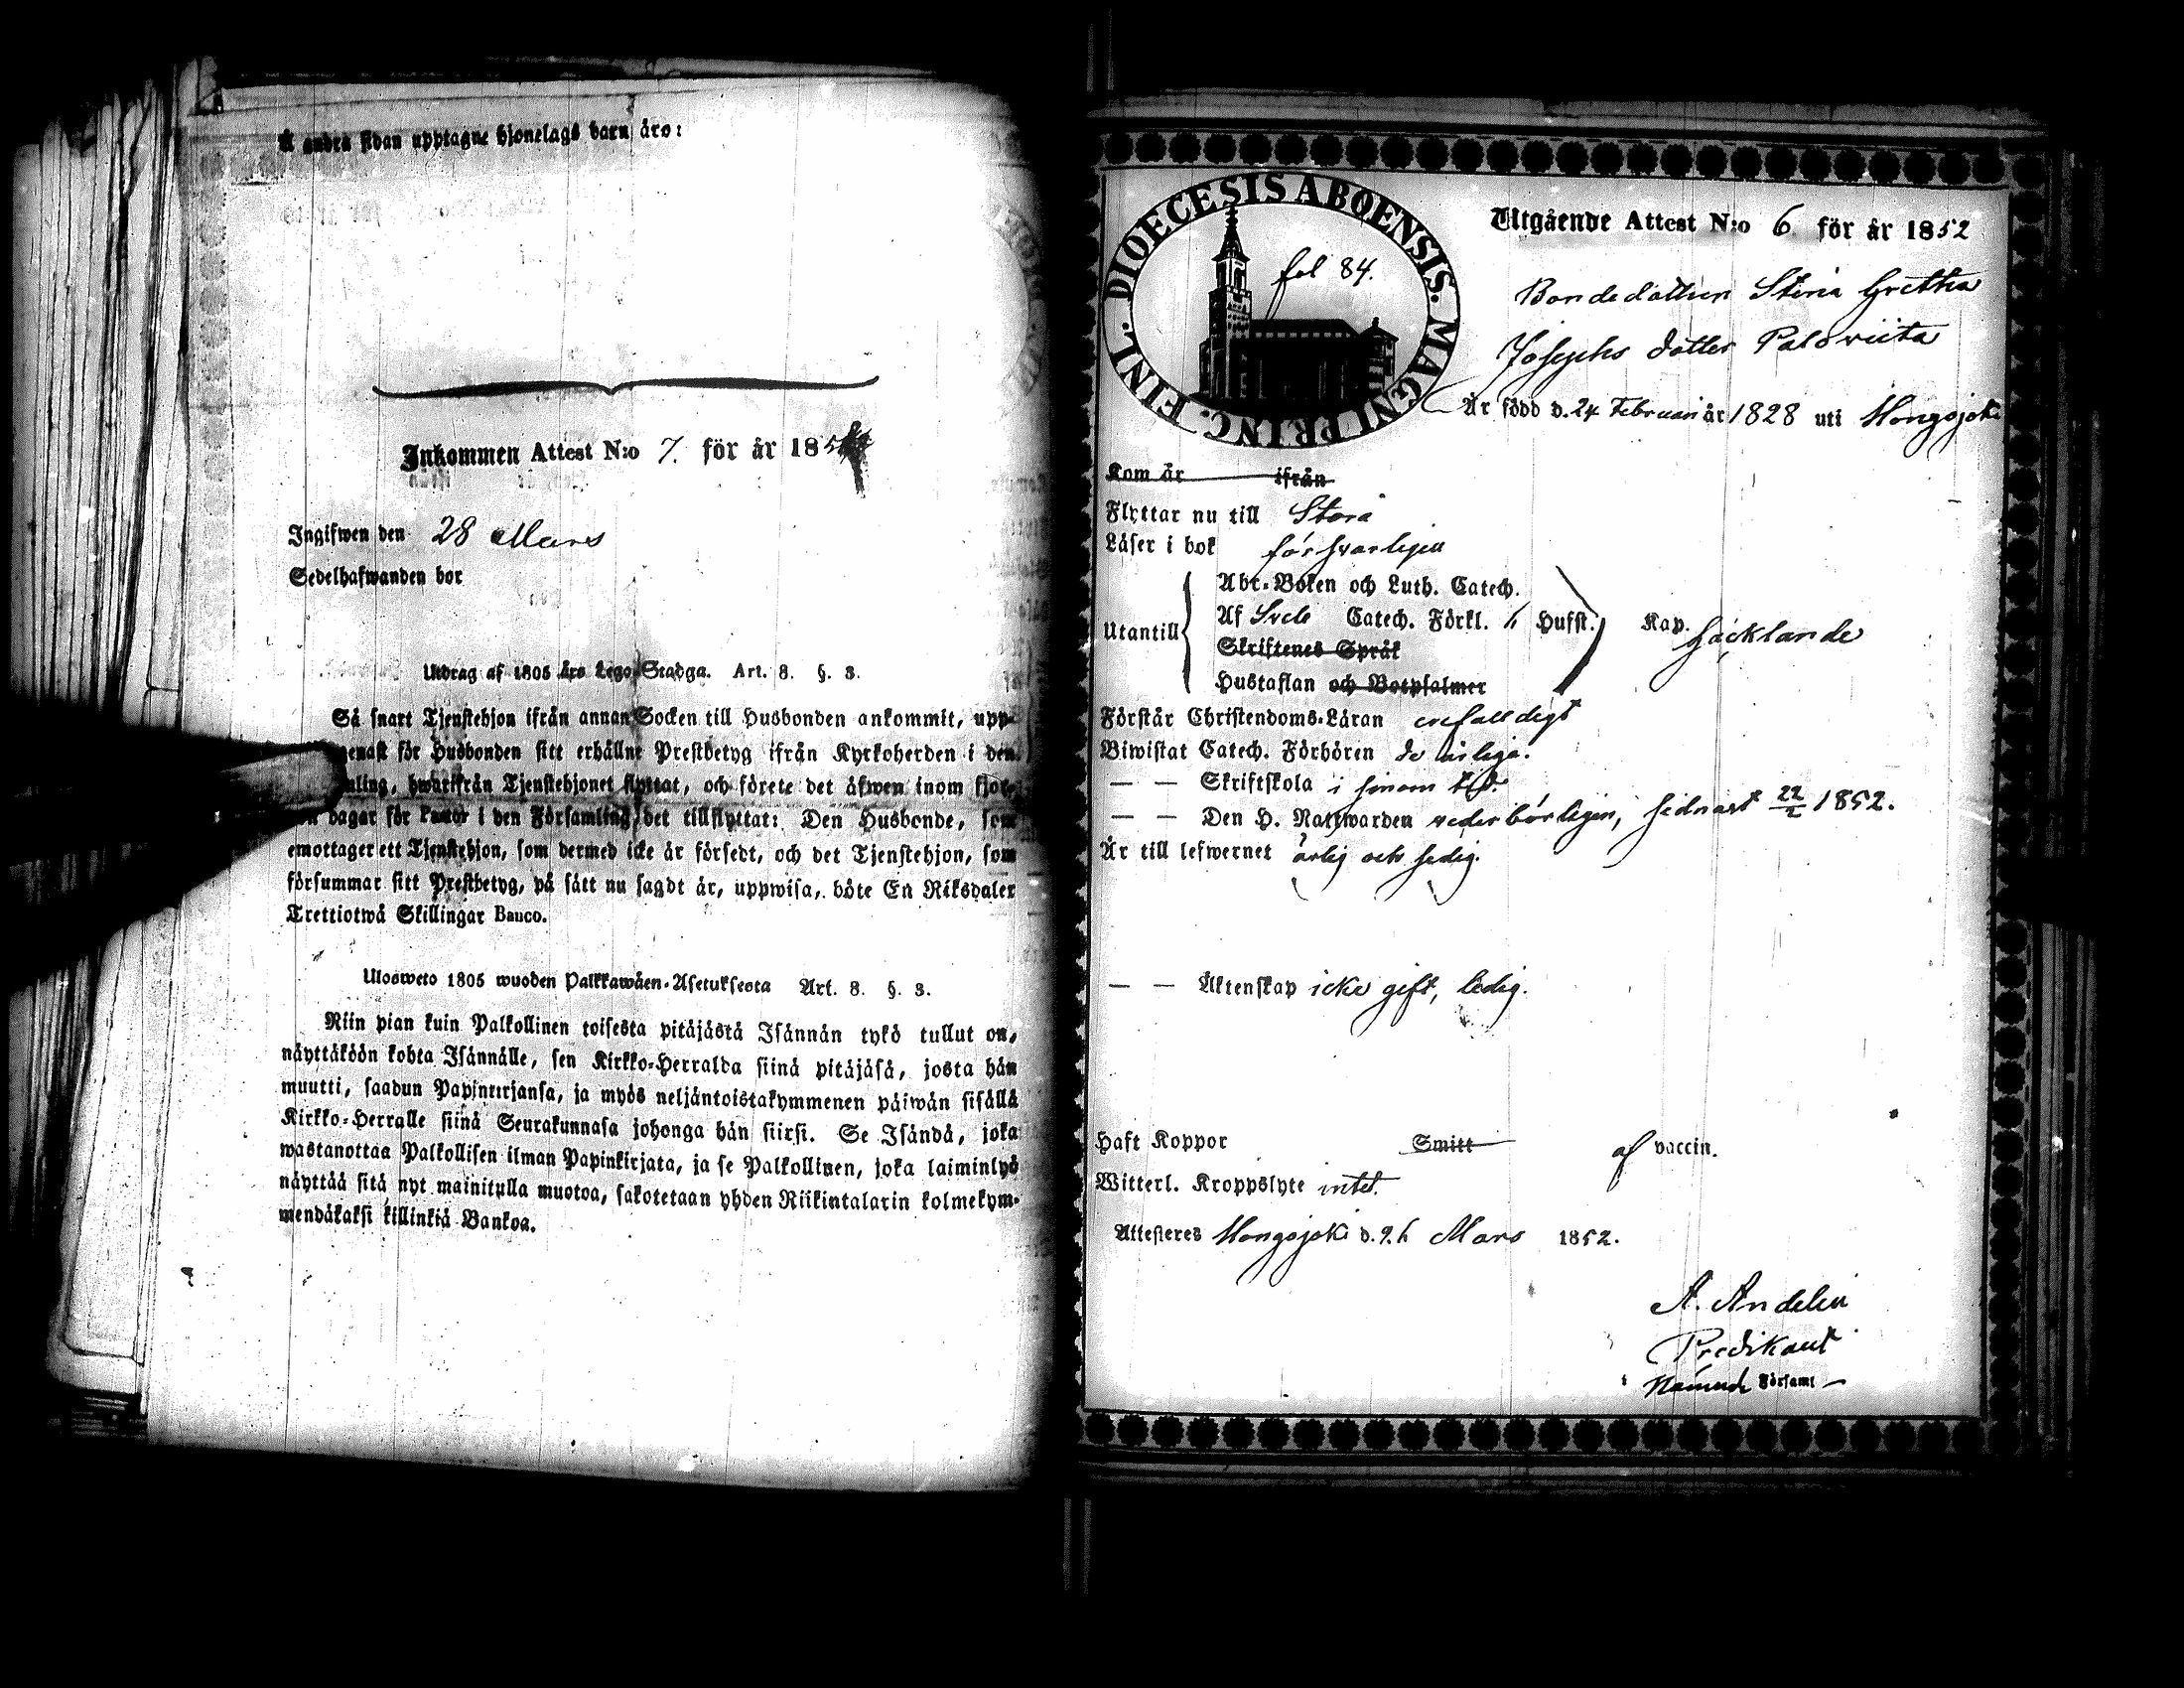 Å andra sidan upptagne hjonelags barn äro:
Inkommen Attest N:o 7. för år 185
Ingifwen den 28 Mars
Sedelhafwanden bor
Utdrag af 1805 års Lego-Stadga. Art. 8. §. 3.
Så snart Tjenstehjon ifrån annan Socken till Husbonden ankommit, upp-
genast för Husbonden sitt erhållne Prestbetyg ifrån Kyrkoherden i den
hwarifrån Tjenstehjonet flyttat, och förete det äfwen inom fjor-
dagar för i den Församling det tillflyttat: Den Husbonde, som
emottager ett Tjenstehjon, som dermed icke är försedt, och det Tjenstehjon, som
försummar sitt Prestbetyg, på sätt nu sagdt är, uppwisa, böte En Riksdaler
Trettiotwå Skillingar Banco.
Ulosweto 1805 wuoden Palkkawäen-Asetuksesta Art. 8. §. 3.
Niin pian kuin Palkollinen toisesta pitäjästä Isännän tykö tullut on,
näyttäköön kohta Isännälle, sen Kirkko-Herralda siinä pitäjäsä, josta hän
muutti, saadun Papinkirjansa, ja myös neljäntoistakymmenen päiwän sisällä
Kirkko-Herralle siinä Seurakunnasa johonga hän siirsi. Se Isändä, joka
wastanottaa Palkollisen ilman Papinkirjata, ja se Palkollinen, joka laiminlyö
näyttää sitä nyt mainitulla muotoa, sakotetaan yhden Riikintalarin kolmekym-
mendäkaksi killinkiä Bankoa.
DIOECESIS ABOENSIS. MAGNI PRINC. FINL.
fol 84.
Utgående Attest N:o 6 för år 1852
Bondedottren Stina Gretha
Josephs dotter Paloviita
Är född d. 24 Februari år 1828 uti Hongojoki
Kom år ifrån
Flyttar nu till Storå
Läser i bok försvarligen
Utantill
Abc-Boken och Luth. Catech.
Af Sveb Catech. Förkl. 6 Hufst. Kap. häcklande
Skriftenes Språk
Hustaflan och Botpsalmer
Förstår Christendoms-Läran enfalldigt
Biwistat Catech. Förhören de årliga.
— — Skriftskola i sinom tid.
— — Den H. Nattwarden vederbörligen, sednast 22/2 1852.
Är till lefwernet ärlig och sedig.
— — Äktenskap icke gift, ledig.
Haft Koppor Smitt af vaccin.
Witterl. Kroppslyte intet.
Attesteres Hongojoki d. 26 Mars 1852.
A. Andelin
Predikant
Församl